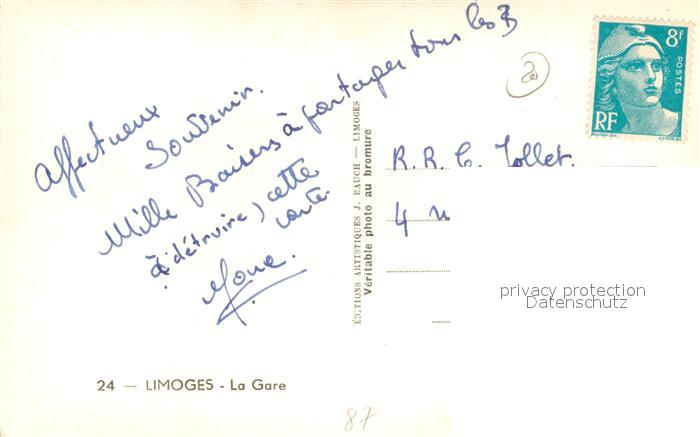 Affectueux
Souvenir.
Mille Baisers à partager tous les 3
(à détruire) cette
carte.
ÉDITIONS ARTISTIQUES J. RAUCH — LIMOGES
Véritable photo au bromure
8f
POSTES
RF
R.R. C. Tollet.
4
privacy protection
Datenschutz
24 — LIMOGES - La Gare
87